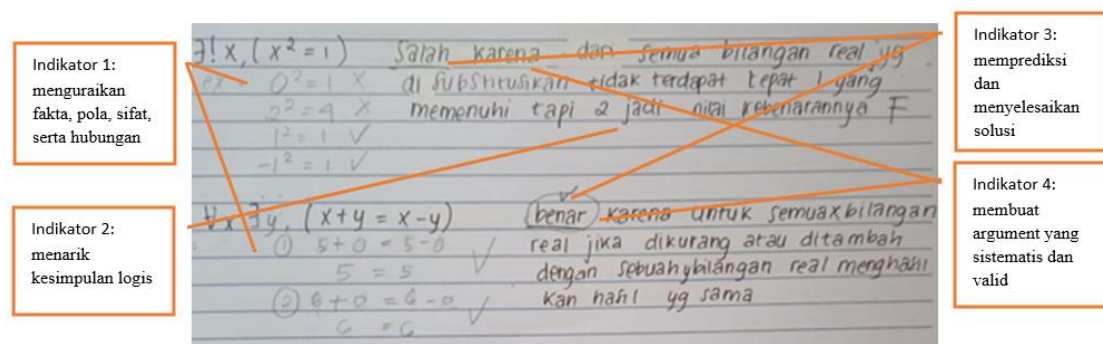 Indikator 1:
menguraikan
fakta, pola, sifat,
serta hubungan
Indikator 2:
menarik
kesimpulan logis
∃! x, (x² = 1)
ex = 0² = 1 X
2² = 4 X
1² = 1 √
-1² = 1 √
Salah karena dari semua bilangan real yg
di substitusikan tidak terdapat tepat 1 yang
memenuhi tapi 2 jadi nilai kebenarannya F
∀x ∃y, (x+y = x-y)
① 5+0 = 5-0 √
5 = 5
② 6+0 = 6-0 √
6 = 6
benar karena untuk semua x bilangan
real jika dikurang atau ditambah
dengan sebuah y bilangan real menghasil
kan hasil yg sama
Indikator 3:
memprediksi
dan
menyelesaikan
solusi
Indikator 4:
membuat
argument yang
sistematis dan
valid